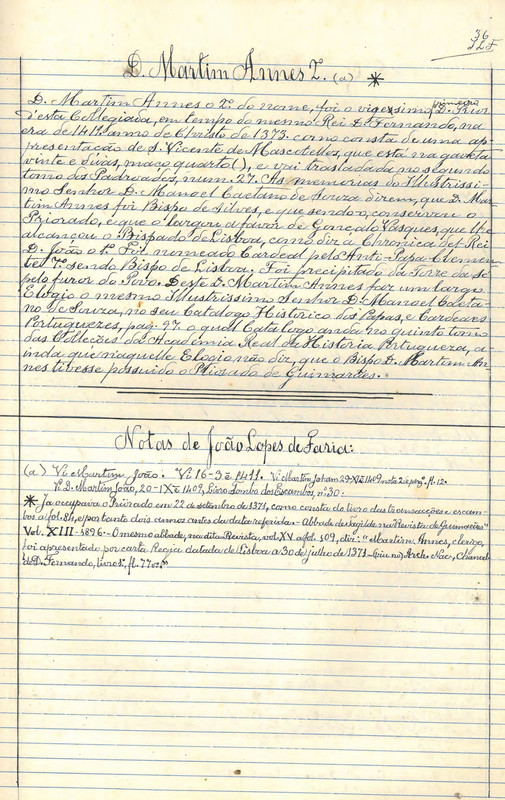 36
D. Martim Annes 2. (a) *
D. Martim Annes o 2º do nome, foi o vigessimo primeiro D. Prior
d'esta Collegiada, em tempo do mesmo Rei D. Fernando, na
era de 1411 anno de Christo de 1373. como consta de uma ap-
presentação de S. Vicente de Mascotellos, que está na gaveta
vinte e duas, maço quarto( ), e vai trasladada no segundo
tomo dos Padroados, num. 27. As memorias do Illustrissi-
mo Senhor D. Manoel Caetano de Souza dizem, que D. Mar-
tim Annes foi Bispo de Silves, e que sendo-o, conservou o
Priorado, e que o largou a favor de Gonçalo Vasques, que lhe
alcançou o Bispado de Lisboa, como diz a Chronica del Rei
D. João o 1º. Foi nomeado Cardeal pelo Anti-Papa Clemen-
te 7º sendo Bispo de Lisboa. Foi precipitado da Torre da Sé
pelo furor do Povo. Deste D. Martim Annes faz um largo
Elogio o mesmo Illustrissimo Senhor D. Manoel Caeta-
no de Souza, no seu Catalogo Historico dos Papas, e Cardeaes
Portuguezes, pag. 97. o qual Catalogo anda no quinto tomo
das Collecões da Academia Real da Historia Portugueza, a-
inda que naquelle Elogio não diz, que o Bispo D. Martim An-
nes tivesse possuido o Priorado de Guimarães.
Notas de João Lopes de Faria:
(a) Vi Martim João. Vi 16-3 E 1411. Vi Martim Joham 29-XI E 1409, nota 2 de perg. fl. 12.
Vi D. Martim João, 20-IX E 1409, Livro Tombo dos Escambos, nº 30:
* Ja occupava o Priorado em 22 de setembro de 1371, como consta do livro das transacções e escam-
bos a fol. 84, e portanto dois annos antes da data referida. - Abbade de Tagilde na "Revista de Guimarães"
Vol. XIII - 1896. - O mesmo abbade, na dita Revista, vol. XV a fol. 109, diz: "Martim Annes, clerigo,
foi apresentado por carta Regia datada de Lisboa a 30 de julho de 1371 - (viu no) Arch. Nac., Chancel.
de D. Fernando, livro 1º, fl. 77 v.º